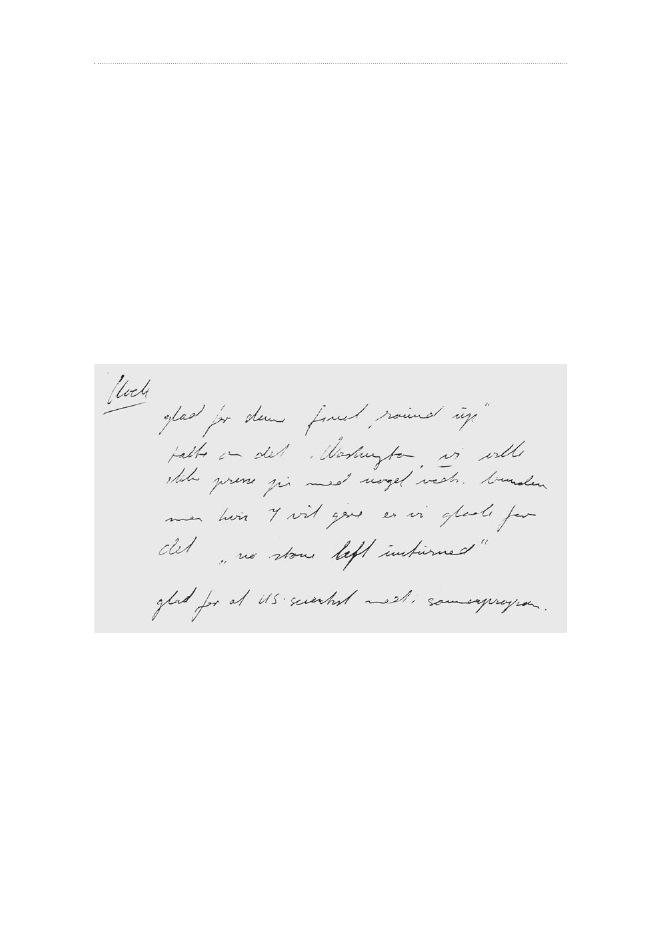 glad for denne final „round up"
talte om det i Washington, vi ville
ikke presse jer med noget vedr. bunden
men hvis I vil gøre er vi glade for
det „no stone left unturned"
glad for at US scientist med i sommerprogram.